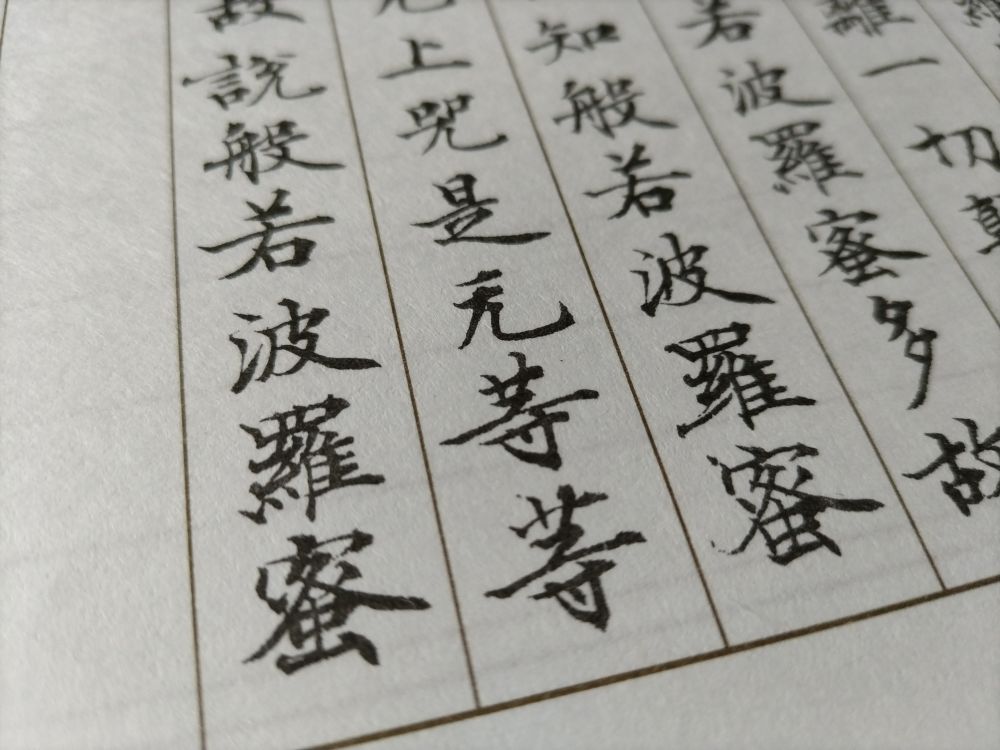 離一切顛
若波羅蜜多故
知般若波羅蜜
无上咒是无等等
故說般若波羅蜜